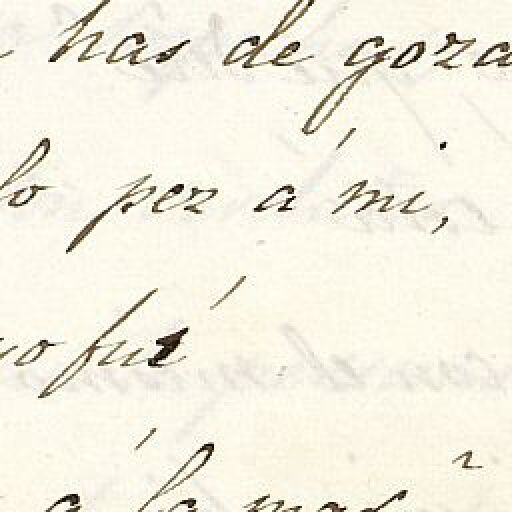 has de goza
lo pez á mi,
yo fué
á la mar